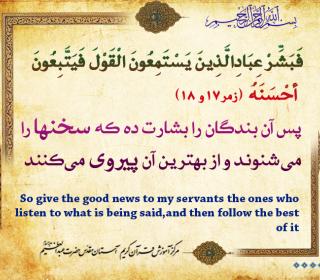 بسم الله الرحمن الرحیم
فَبَشِّرْ عِبَادِالَّذِينَ يَسْتَمِعُونَ الْقَوْلَ فَيَتَّبِعُونَ
أَحْسَنَهُ (زمر۱۷ و ۱۸)
پس آن بندگان را بشارت ده که سخنها را
می‌شنوند و از بهترین آن پیروی می‌کنند
So give the good news to my servants the ones who
listen to what is being said,and then follow the best
of it
مرکز آموزش قرآن کریم آستان مقدس حضرت عبدالعظیم